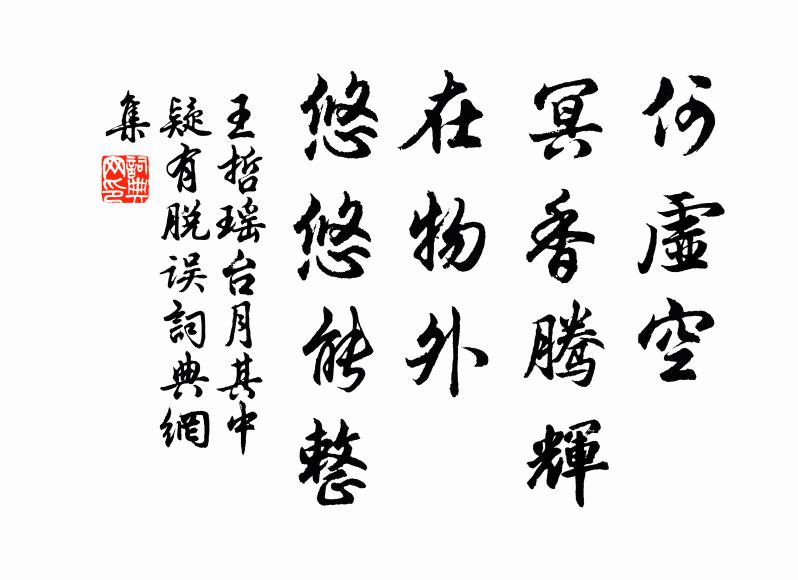 何虛空
冥香騰輝
在物外
悠悠能整
王哲瑶台月其中
疑有脱误詞典網
集
詞典
网印